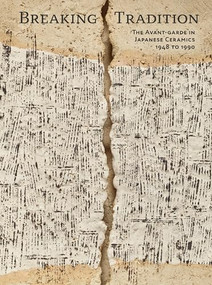 Breaking Tradition
The Avant-garde in
Japanese Ceramics
1948 to 1990